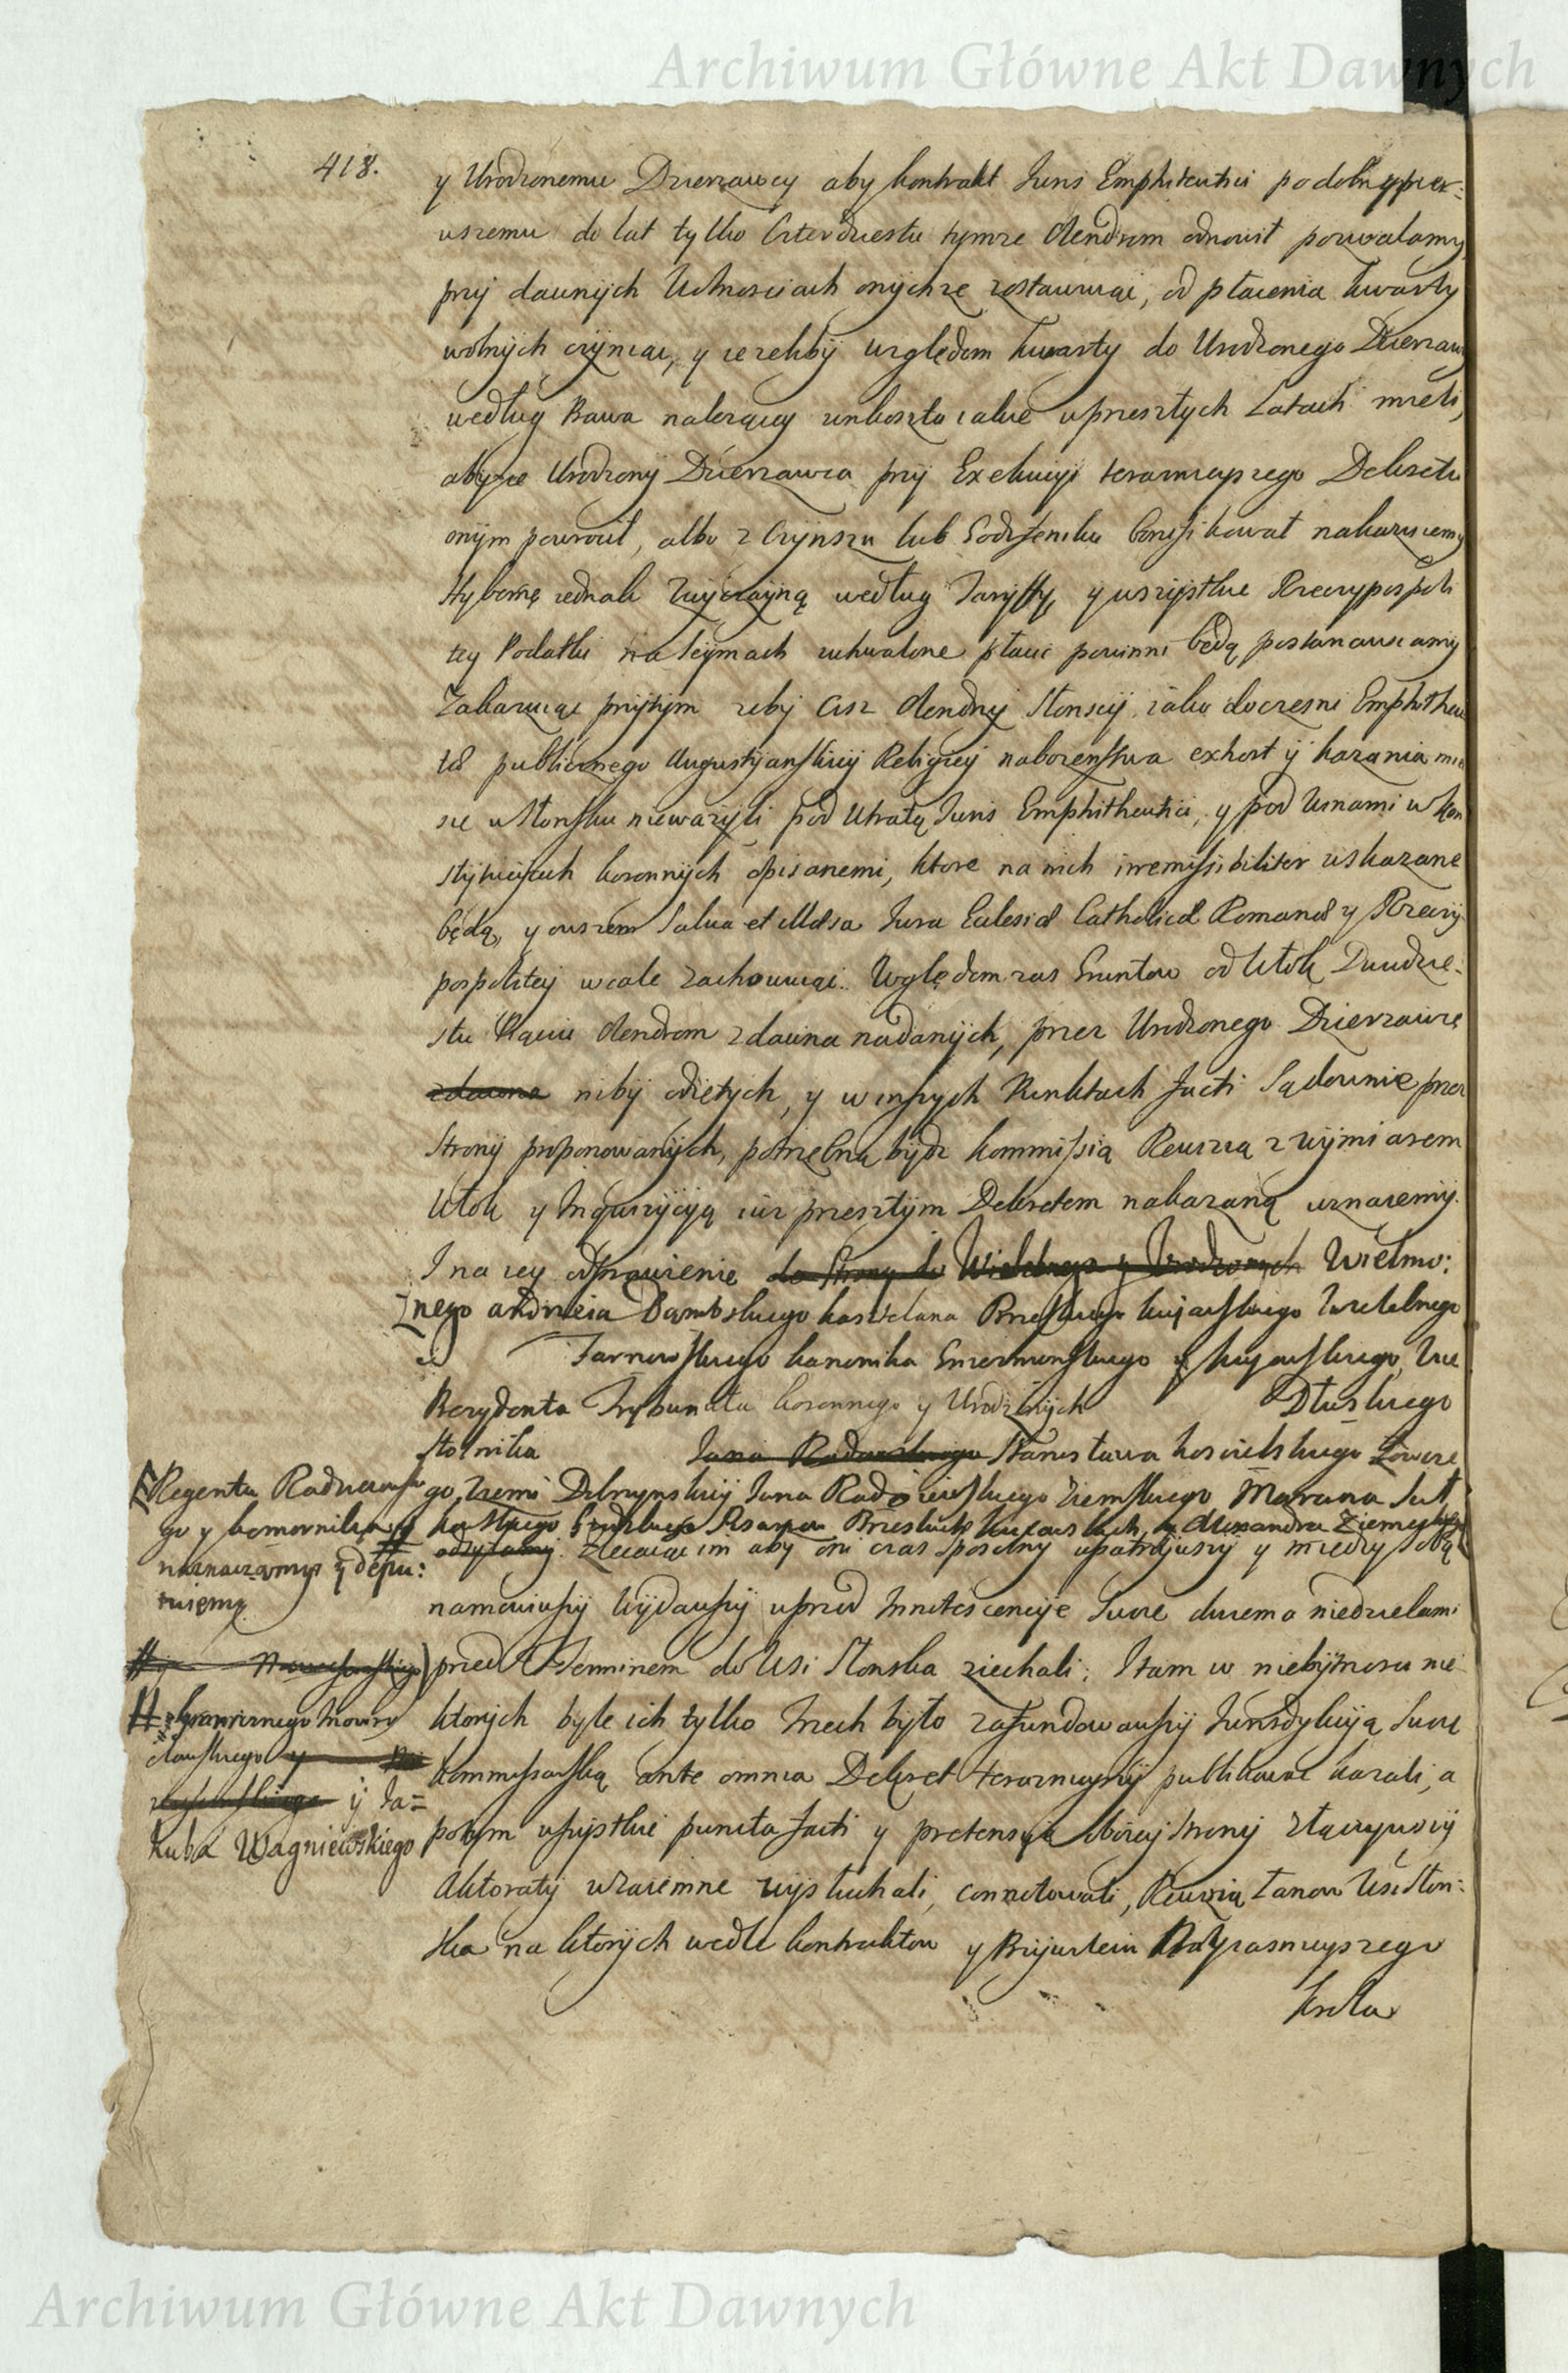 Archiwum Główne Akt Dawnych
418.
y Urodzonemu Dzierzawcy aby kontrakt Juris Emphiteutici podobny pier:
wszemu do lat tylko Czterdziestu tymze Olendrom odnowił pozwalamy
przy dawnych Wolnosciach onychze zostawuiąc, od płacenia kwarty
wolnych czyniąc, y iezeliby względem kwarty do Urodzonego Dzierzaw
według Prawa nalezącey unkoszta iakie w przeszłych Latach mieli,
abyze Urodzony Dzierzawca przy Exekucyi teraznieyszego Dekretu
onym powrocił, albo z Czynszu lub konfikował nakazuiemy
Hybernę iednak Zwyczayną według Taryffy, y wszystkie Rzeczypospoli
tey Podatki na Seymach uchwalone płacić powinni będą postanawiamy
Zakazuiąc przytym zeby Ciz Olendrzy Słonscy iako doczesni Emphitheu
tæ publicznego Augustyanskiey Religiey nabozenstwa exhort y kazania mie
sie w Słonsku niewazyli pod Utratą Juris Emphitheutici, y pod Winami w kon
stytucyach koronnych opisanemi, ktore na nich irremissibiliter wskazane
będą, y owszem Salva et illæsa Jura Eclesiæ Catholicæ Romanæ y Rzeczy
pospolitey wcale zachowuiąc. Względem zas Gruntow od Włok Dwudzie-
stu Pąciu Olendrom zdawna nadanych, przez Urodzonego Dzierzawcę
zdawna niby odiętych, y w inszych Punktach facti Sądownie przez
Strony proponowanych, potrzebną bydz kommissią Rewizią z wymiarem
Włok y Inquizycyą iuz przeszłym Dekretem nakazaną uznaiemy.
I na iey odprawienie do Strony do Wielebnego y Urodzonych Wielmo:
znego Andrzeia Dąmbskiego kasztelana Brzeskiego kujawskiego Wielebnego
Tarnowskiego kanonika Gnieznienskiego y kujawskiego, Vice
Prezydenta Trybunału koronnego y Urodzonych Dłuskiego
Stolnika Jana Radzewskiego Stanisława koscielskiego Łowcze
go, Ziemi Dobrzynskiey Jana Radoiewskiego Ziemskiego Marcina
Grodzkiego Pisarzow Brzeskich kujawskich, Alexandra
odsyłamy. Zlecaiąc im aby oni czas sposobny upatrzywszy y między sobą
namowiwszy Wydawszy wprzod Innotescencye Swoie dwiema niedzielami
przed Terminem do Wsi Słonska ziechali; I tam w niebytnosci nie
ktorych byle ich tylko trzech było zafundowawszy Jurisdykcyą Swoię
kommissarską ante omnia Dekret teraznieyszy publikować kazali, a
potym wszystkie puncta facti y pretensye oboiey strony ztączywszy
Aktoraty wzaiemne wysłuchali, connotowali, Rewizią Łanow Wsi Słon:
ska na ktorych wedle kontraktow y Przywileiu Nayiasnieyszego
Krola
Regenta Radziewskie
go y komornika
naznaczamy y depu:
tuiemy
Granicznego Inowro
cławskiego y
y Ja=
kuba Wągniewskiego
Archiwum Główne Akt Dawnych